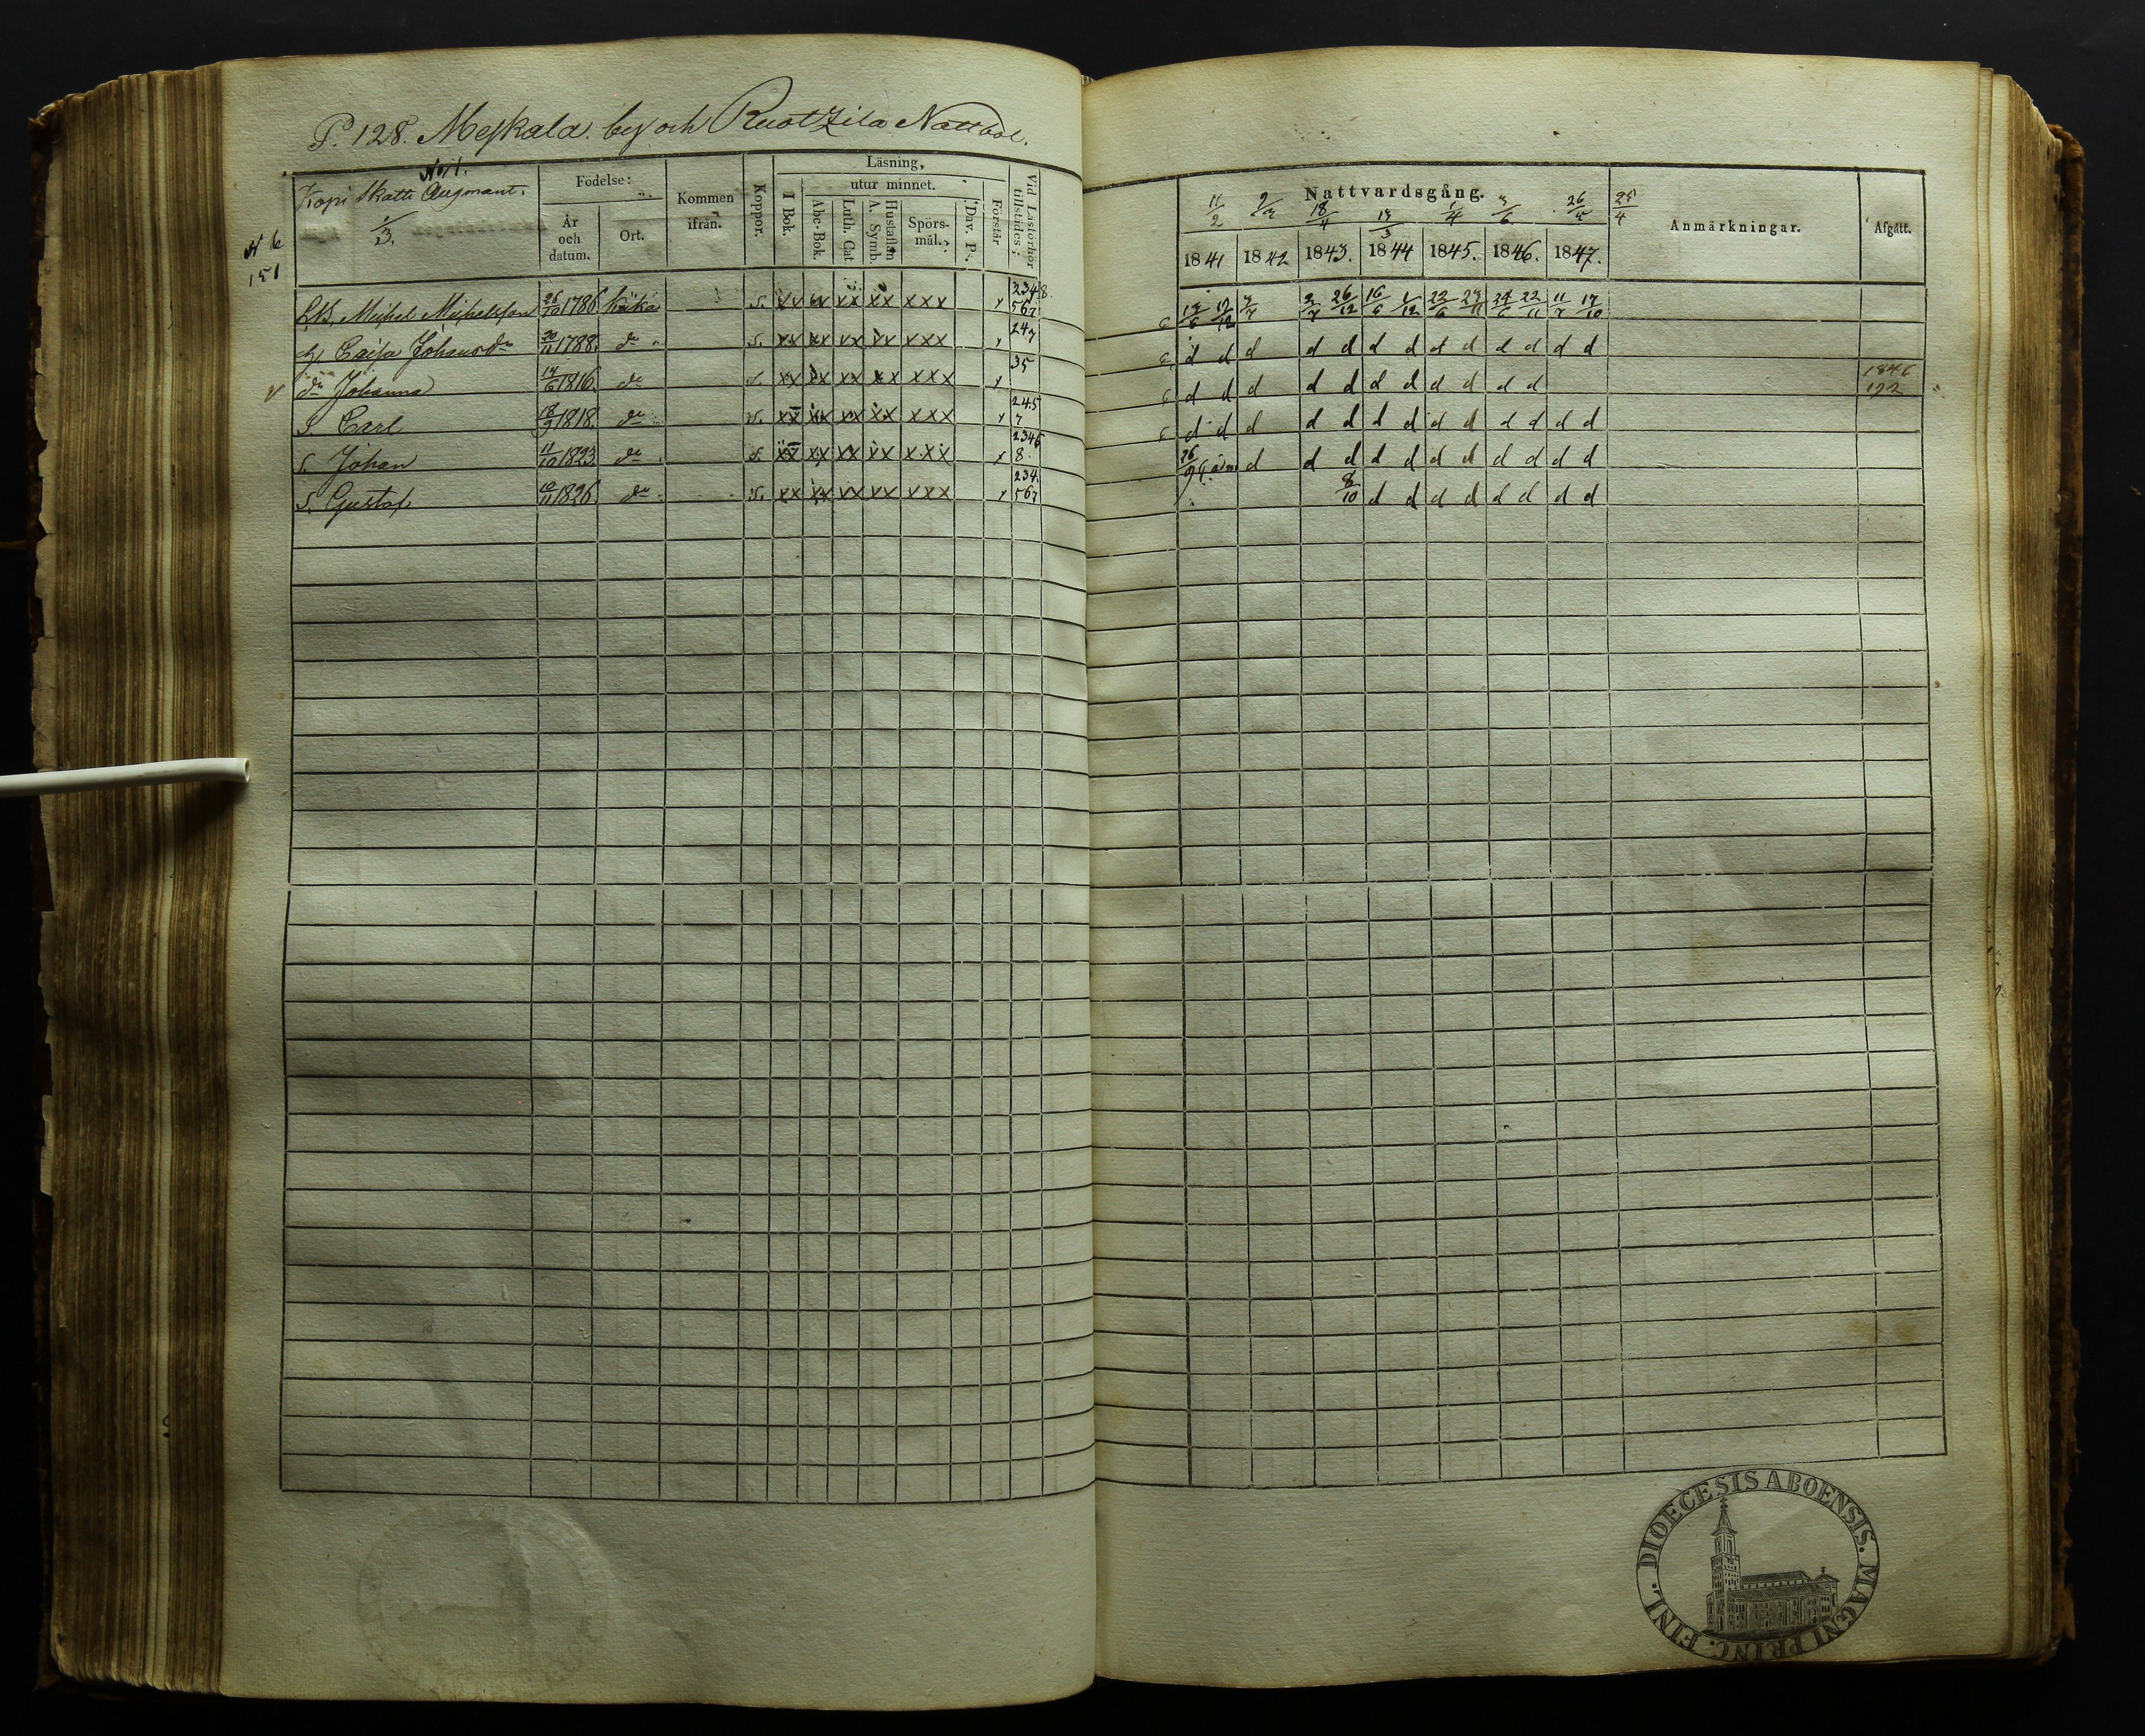 P. 128. Meskala by och Ruotzila Nattbol.
No 1.
Kopi Skatte Augment.
1/3.
N 6
151
Födelse:
År och datum.
Ort.
Kommen ifrån.
Koppor.
Läsning,
I Bok.
utur minnet.
Abc-Bok.
Luth. Cat.
Hustaflan A. Symb.
Spörs-mål.
Dav. Ps.
Förstår
Vid Läsförhör tillstädes:
Michel Michelsson 26/10 1786 xx xx xx xx xxx x 2348 567
Caisa Johansdr 1788. do xx xx xx xx xxx x 247
dr Johanna 14/6 1816. do xx xx xx xx xxx x 35
S. Carl 18/9 1818. do xx xx xx xx xxx x 245 7
S. Johan 11/10 1823. do xx xx xx xx xxx x 2346 8.
S. Gustaf 10/11 1826. do xx xx xx xx xxx x 234. 567
Nattvardsgång.
11/2 18/4 1/4 26/4 25/4
1841 1842 1843. 1844 1845. 1846. 1847.
Anmärkningar.
Afgått.
26/12 22/11 11/7 17/10
d d d d d d d d d d d d d
d d d d d d d d d d d 1846 192
d d d d d d d d d d d d d
26/9 d d d d d d d d d d d
8/10 d d d d d d d d
FINL. DIOECESIS ABOENSIS. MAGNI PRINC.